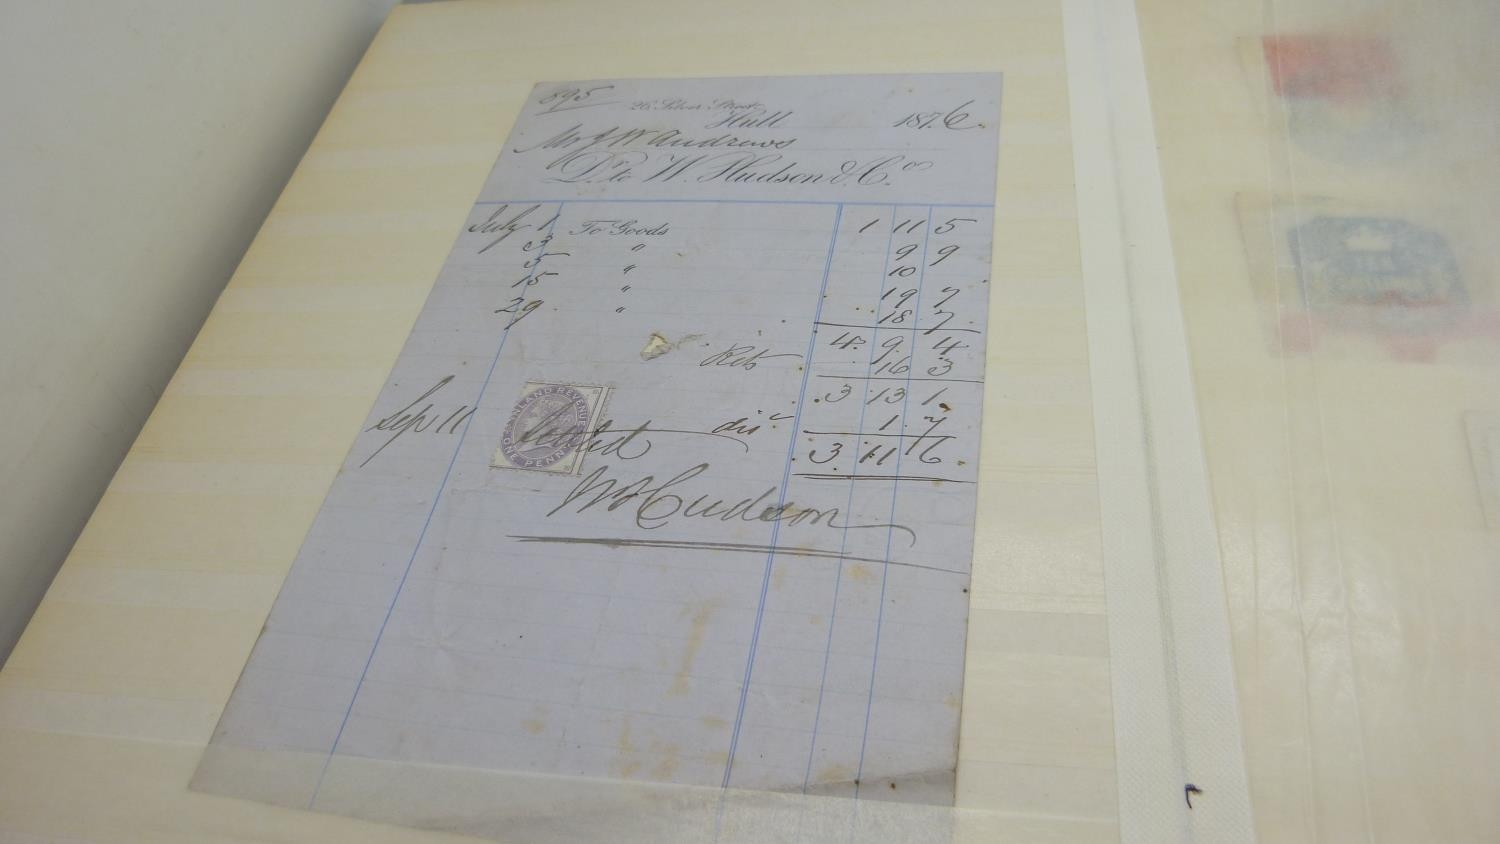 895
26 Silver Street
Hull 187.6.
Mr J W Andrews
Dr. to W. Hudson & Co.
July 1 To Goods 1 11 5
3 " 9 9
5 " 10
15 " 19 7
29 " 18 7
4 9 4
Rets 16 3
3 13 1
Sep 11 Settled dis 1 7
3 11 6
INLAND REVENUE
ONE PENNY
W Hudson